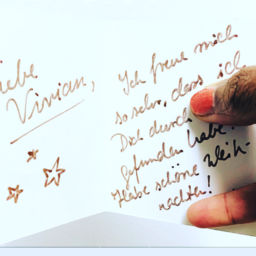 Liebe
Vivian,
Ich freue mich
so sehr, dass ich
Dich durch
gefunden habe!
Habe schöne Weih-
nachten!